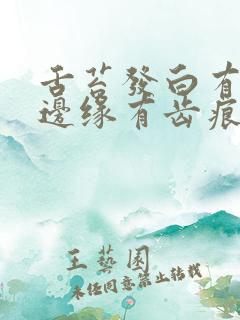 舌苔發白有
邊缘有齿痕
王藝園
未经同意禁止转载